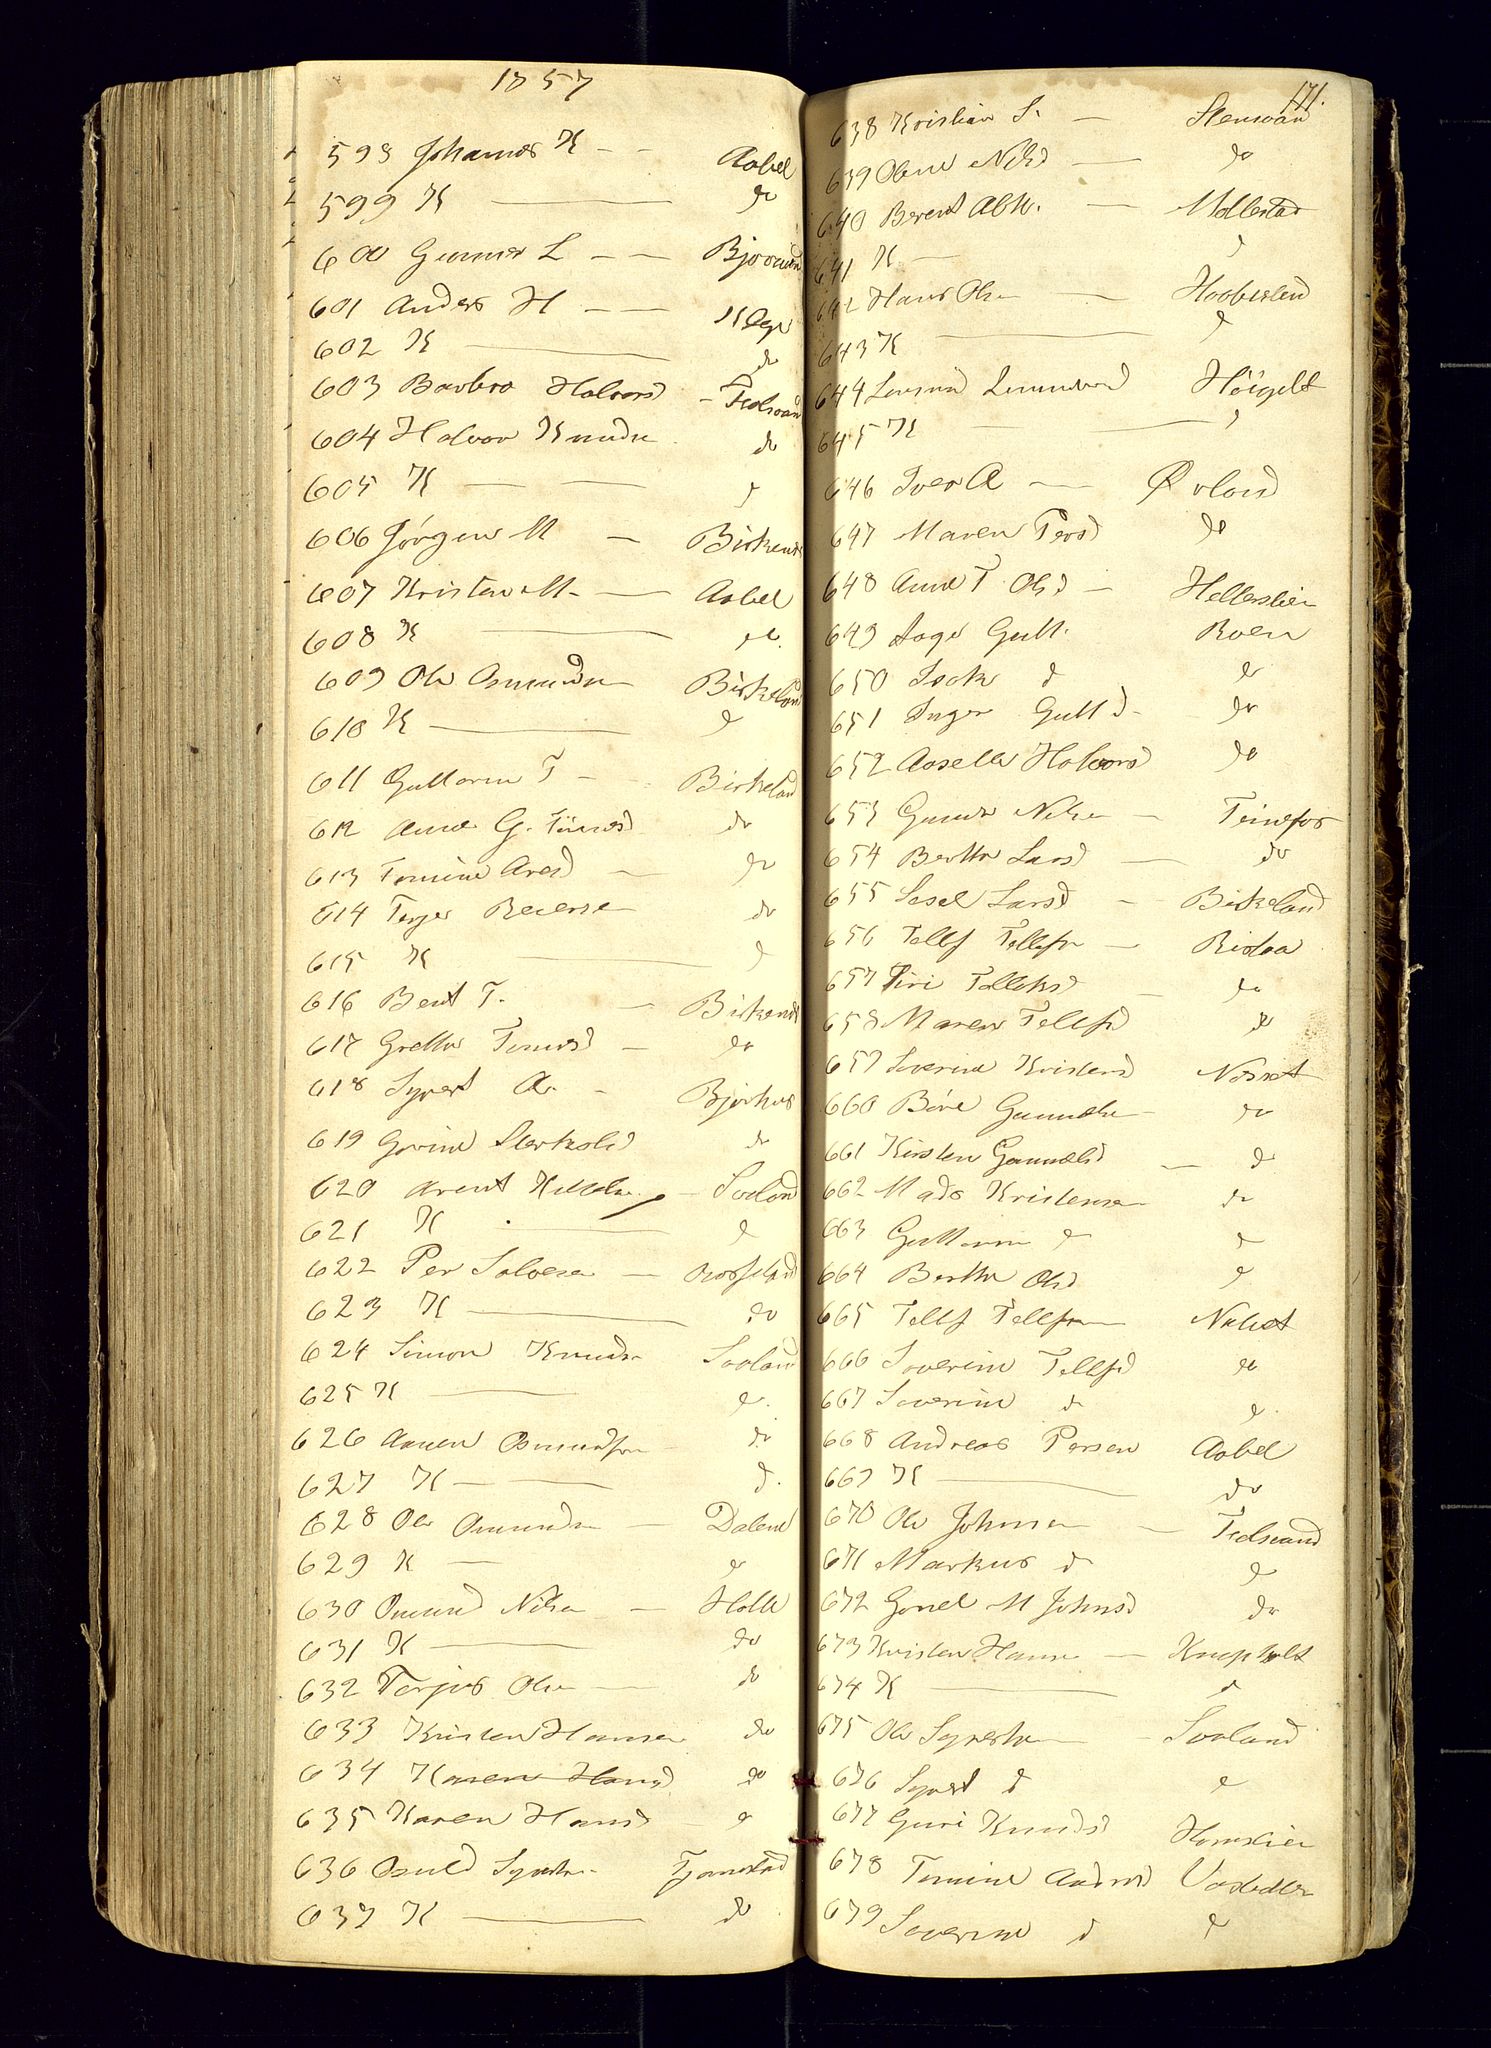 1857
598 Johannes K — — Aabel
599 K — do
600 Gunner L — — Bjorvand
601 Anders H — —
602 K — do
603 Barbro Halvors — Fidsvand
604 Halvor Knuds do
605 K — — d
606 Jörgen M — Birkenes
607 Kristen M — Aabel
608 K — do.
609 Ole Osmunds Birkeland
610 K — d
611 Guttorm T — Birkeland
612 Anne G. Tomasd do
613 Tomine Aresd — do
614 Terjer Reierse do
615 K — d
616 Bent T. — Birkenes
617 Grethe Tomasd — do
618 Syvert A. — Bjorkos
619 Gorine do
620 Arent — Soeland
621 K — d
622 Per Salvese — Oddesland
623 K — do
624 Simon Knuds Soeland
625 K — d.
626 Aanen Osmundsen do
627 K — d.
628 Ole Osmunds — Dalene
629 K — d
630 Omund Nilse — Holle
631 K — do
632 Terjus Olse — do
633 Kristen Hanse do
634 Karen Hansd do
635 Karen Hansd — d
636 Osuld Syverts Tjomstad
637 K — do
171.
638 Kristian S. — Stensvand
639 Olene Nilsd — do
640 Berent Abr. — Mollestad
641 K — d
642 Hans Olse — Hobbesland
643 K — d
644 Höigelt
645 K — d
646 Iver A — Øvland
647 Maren Persd do
648 Anne T Olsd — Hellerslien
649 Aage Gutt. Roen
650 Isak d d
651 Inger Gutt d. do
652 Aaselle Halvorsd do
653 Gunder Nilse — Teinefos
654 Berthe Larsd — do
655 Sesel Larsd — Birkeland
656 Tellf Tellefse — Risdaa
657 Siri Tellefsd — do
658 Maren Tellfsd do
659 Severine Kristensd Næset
660 Böre Gunnulse do
661 Kirsten Gunnulsd — d
662 Mads Kristense do
663 Guttorm d d
664 Berthe Olsd d
665 Tellf Tellfsen Næset
666 Soverine Tellfsd do
667 Soverine d d
668 Andreas Persen Aabel
669 K — do
670 Ole Johnsen — Fidsvand
671 Markus d d
672 Gonel M Johnsd do
673 Kristen Hanse — Knepholt
674 K — d
675 Ole Syvertse — Soeland
676 Syvert d d
677 Guri Knudsd Homslien
678 Tomine Andersd
679 Severine d d